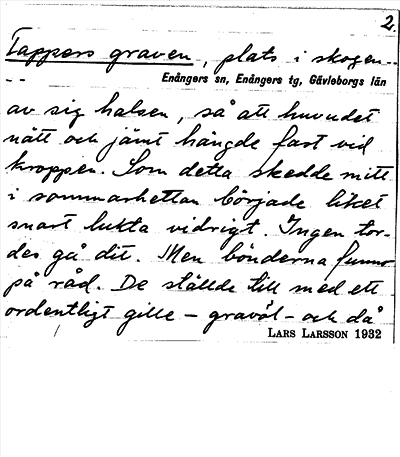 2.
Tappers graven, plats i skogen --
Enångers sn, Enångers tg, Gävleborgs län
--
av sig halsen, så att huvudet
nätt och jämt hängde fast vid
kroppen. Som detta skedde mitt
i sommarhettan började liket
snart lukta vidrigt. Ingen tor-
des gå dit. Men bönderna funno
på råd. De ställde till med ett
ordentligt gille – gravöl – och då
LARS LARSSON 1932